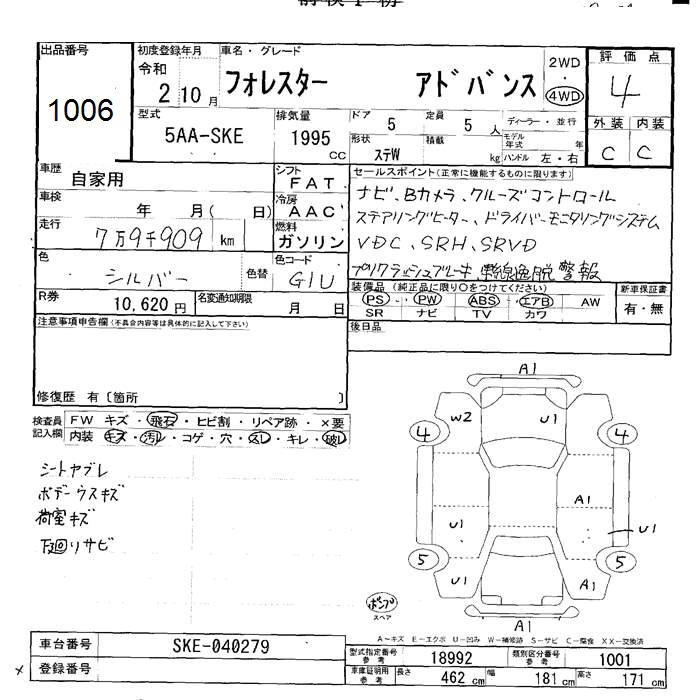 出品番号
1006
初度登録年月
令和
2 10 月
車名・グレード
フォレスター アドバンス
2WD
・
4WD
評価点
4
型式
5AA-SKE
排気量
1995
CC
ドア
5
定員
5 人
形状
ステW
積載
kg
ディーラー・並行
モデル年式 年
ハンドル 左・右
外装 内装
C C
車歴
自家用
シフト
FAT
冷房
AAC
燃料
ガソリン
車検
年 月( 日)
走行
7万9千909 km
色
シルバー
色替
色コード
G1U
R券
10,620 円
名変通知期限
月 日
セールスポイント(正常に機能するものに限ります)
ナビ、Bカメラ、クルーズコントロール
ステアリングヒーター、ドライバーモニタリングシステム
VDC、SRH、SRVD
プリクラッシュブレーキ 車線逸脱警報
装備品(純正品に限り○をつけてください)
PS・PW ABS・エアB AW
SR ナビ TV カワ
新車保証書
有・無
後日品
注意事項申告欄(不具合内容等は具体的に記入して下さい)
修復歴 有〔箇所 〕
検査員記入欄
FW キズ・飛石・ヒビ割・リペア跡・×要
内装 キズ・汚レ・コゲ・穴・スレ・キレ・破レ
シートヤブレ
ボデーウスキズ
荷室キズ
下回りサビ
A1
W2 U1
4 4
A1
U1 U1
5 5
U1 A1
A1
ポンプ
スペア
A-キズ E-エクボ U-凹み W-補修跡 S-サビ C-腐食 XX-交換済
車台番号
SKE-040279
登録番号
型式指定番号
参考
18992
類別区分番号
参考
1001
車庫証明用
参考
長さ 462 cm 幅 181 cm 高さ 171 cm